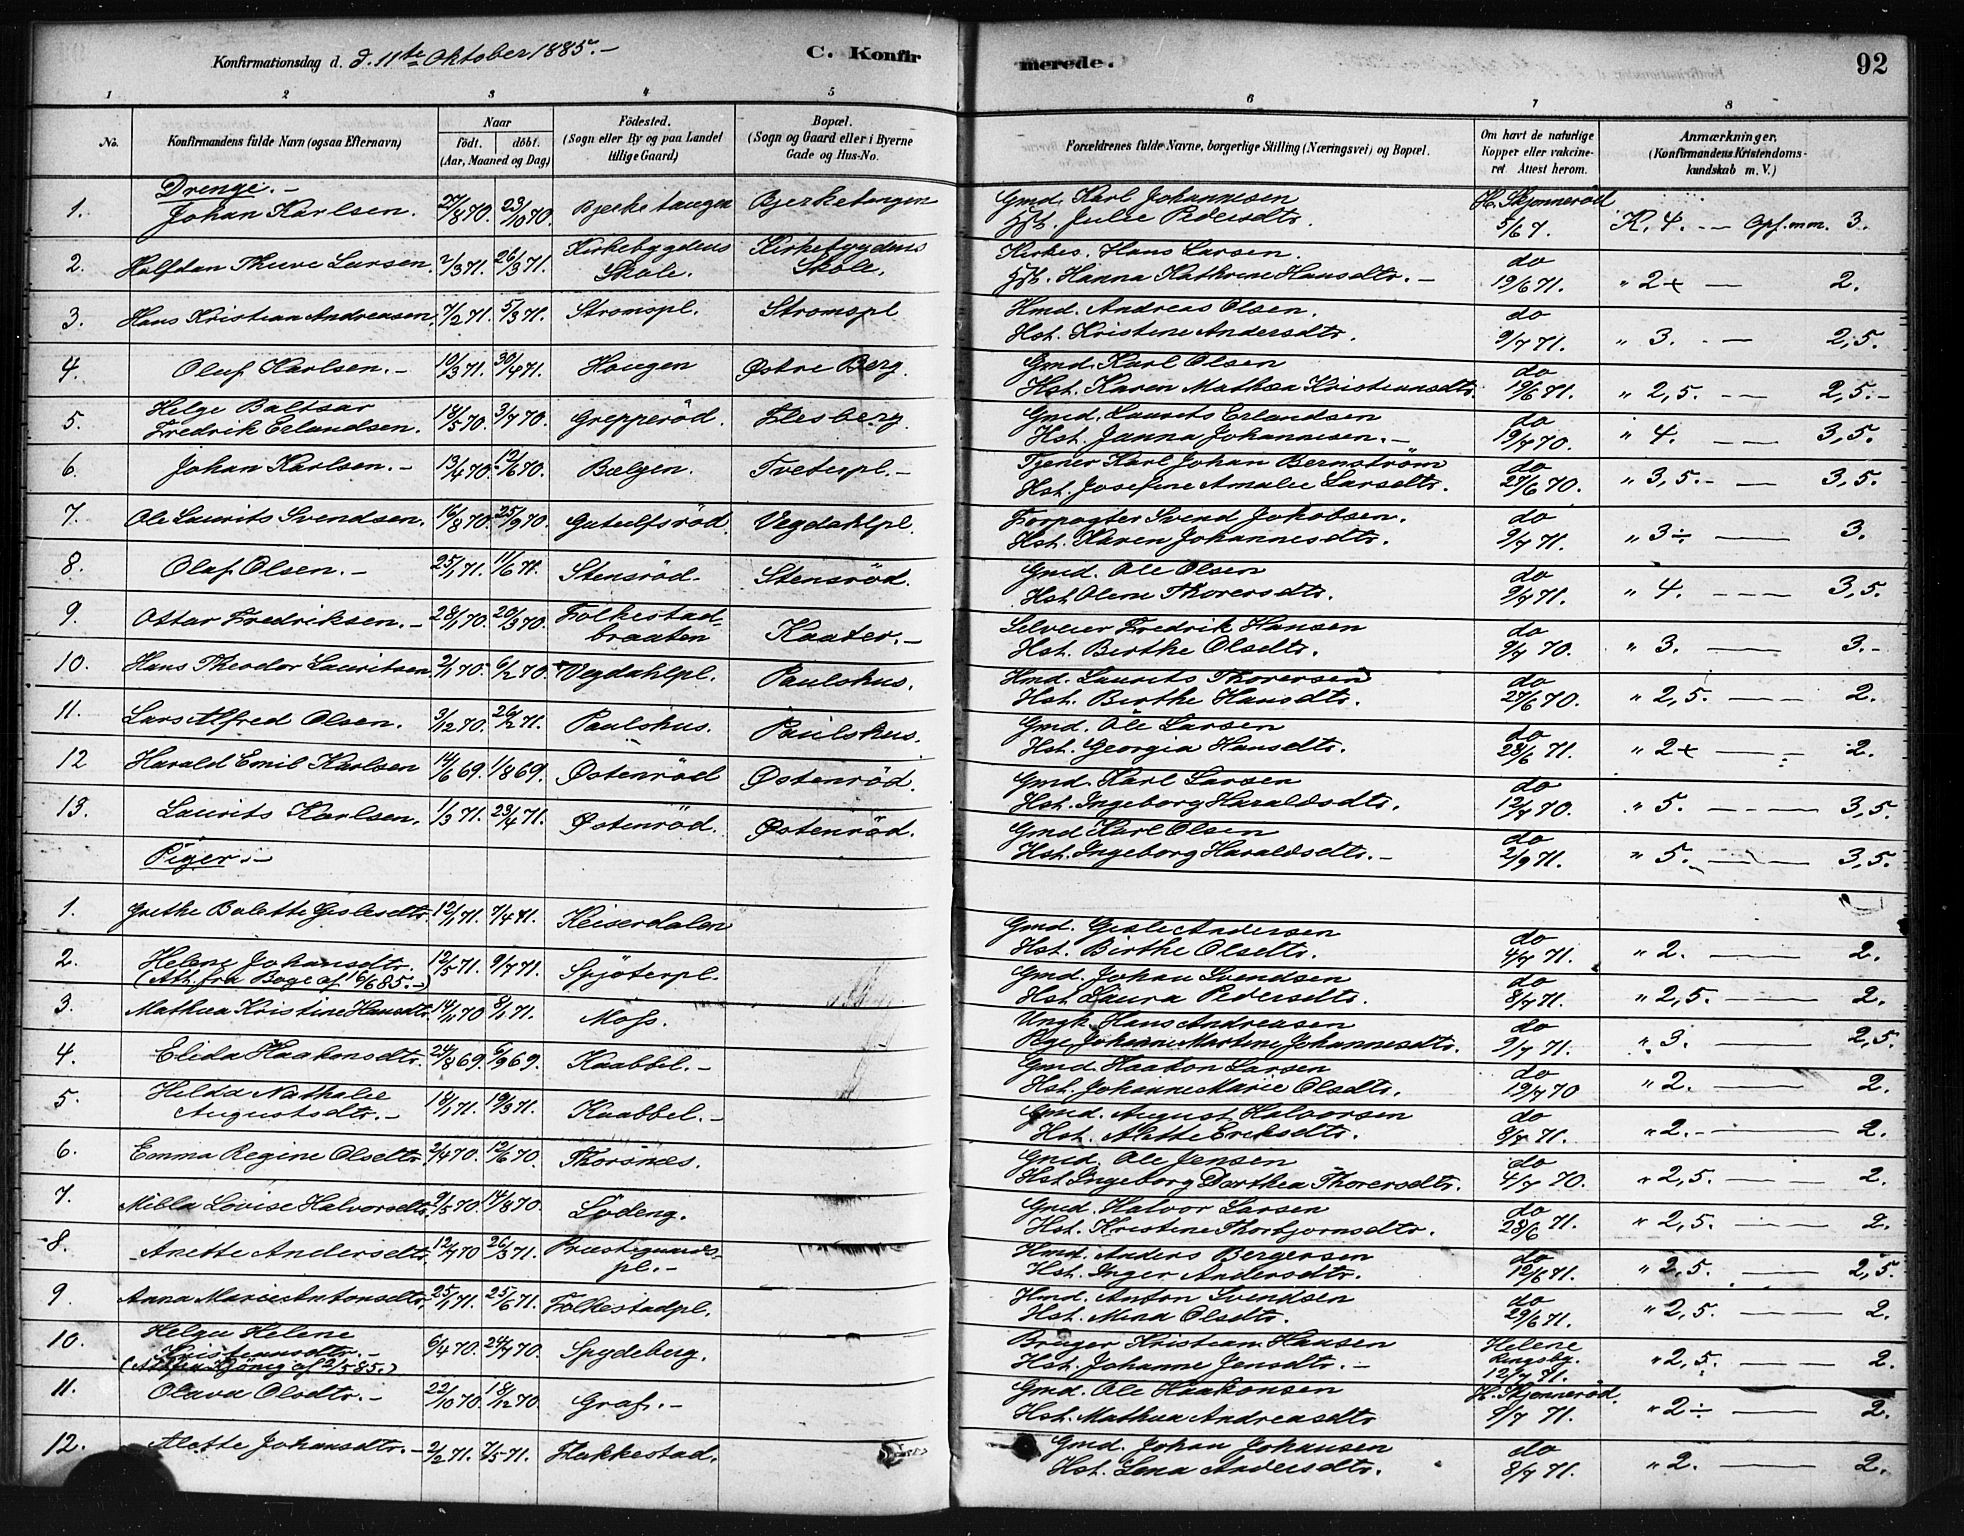 Konfirmationsdag d. d. 11te Oktober 1885.-
C. Konfirmerede.
92
1 2 3 4 5 6 7 8
No.
Konfirmandens fulde Navn (ogsaa Efternavn)
Naar
födt. döbt.
(Aar, Maaned og Dag)
Födested.
(Sogn eller By og paa Landet
tillige Gaard)
Bopæl.
(Sogn og Gaard eller i Byerne
Gade og Hus-No.
Forældrenes fulde Navne, borgerlige Stilling (Næringsvei) og Bopæl.
Om havt de naturlige
Kopper eller vakcine-
ret. Attest herom.
Anmærkninger,
(Konfirmandens Kristendoms-
kundskab m. V.)
Drenge.-
1. Johan Karlsen. 27/8 70. 23/10 70. Bjerketangen Bjerketangen Gmd. Karl Johannesen H. Skjønnerød
Julie Pedersdtr. 5/6 7. K. 4. - Opf. mm. 3.
2. Halfdan Thuve Larsen. 2/3 71. 26/3 71. Kirkebygdens Skole. Kirkebygdens Skole. Kirkes. Hans Larsen. do
Hanna Kathrine Hansdtr. - 19/6 71. " 2+ - 2.
3. Hans Kristian Andreasen. 7/2 71. 5/3 71. Stromspl. Stromspl Hmd. Andreas Olsen. do
Hst. Kristine Andersdtr. 9/7 71. " 3. - 2,5.
4. Oluf Karlsen. - 10/3 71. 30/4 71. Haugen Østre Berg. Gmd. Karl Olsen do
Hst. Karen Mathea Kristiansdtr. 19/6 71. " 2,5. - 2,5.-
5. Helge Baltsar Fredrik Erlandsen. 18/5 70. 3/7 70. Grepperød. Flesberg. Gmd. Laurits Erlandsen do
Hst. Janna Johannesen. - 19/7 70. " 4. - 3,5.
6. Johan Karlsen. - 13/4 70. 12/6 70. Bælgen. Tvetepl. - Tjener Karl Johan Bernström do
Hst. Josefine Amalie Larsdtr. 27/6 70. " 3,5. - 3,5.
7. Ole Laurits Svendsen. 16/8 70. 25/9 70. Gutulfsrød Vegdahlpl. Forpagter Svend Jakobsen. do
Hst. Karen Johannesdtr. 9/7 71. " 3÷ - 3.
8. Olaf Olsen. - 25/1 71. 11/6 71. Stensrød. Stensrød. Gmd. Ole Olsen do
Hst. Olene Thoresdtr. 9/7 71. " 4. - 3,5.
9. Ottar Fredriksen. - 28/1 70. 20/3 70. Folkestad-braaten Kaater. - Selveier Fredrik Hansen do
Hst. Birthe Olsdtr. 9/7 70. " 3. - 3.-
10. Hans Theodor Lauritsen 2/1 70. 6/2 70. Vegdahlpl. Paulshus. Hmd. Laurits Thoresen do
Hst. Birthe Hansdtr. 27/6 70. " 2,5. - 2.
11. Lars Alfred Olsen. 3/12 70. 26/2 71. Paulshus. Paulshus. Gmd. Ole Larsen do
Hst. Georgia Hansdtr. 28/6 71. " 2+ - 2.
12 Harald Emil Karlsen 14/6 69. 1/8 69. Østenrød Østenrød. Gmd. Karl Larsen do
Hst. Ingeborg Haraldsdtr. 12/7 70. " 5. - 3,5.
13. Laurits Karlsen. 1/3 71. 23/4 71. Østenrød. Østenrød. Gmd Karl Olsen do
Hst. Ingeborg Haraldsdtr. - 2/9 71. " 5. - 3,5.
Piger. -
1. Grethe Bolette Gislesdtr. 12/1 71. 7/4 71. Keiserdalen Gmd. Gisle Andersen do
Hst. Birthe Olsdtr. 4/7 71. " 2. - 2.
2. Helene Johansdtr. 12/5 71. 9/7 71. Spjøterpl. Gmd. Johan Svendsen do
(Att. fra Bage af 16/6 85.-) Hst Laura Pedersdtr. 8/7 71. " 2,5. - 2.
3. Mathea Kristine Hansdtr. 14/11 70 8/1 71. Moss. Ungk. Hans Andreasen do
Pge Johanne Martine Johannesdtr. 9/7 71. " 3. - 2,5.
4. Elida Haakonsdtr. 24/8 69. 6/9 69. Kaabbel. - Gmd Haakon Larsen do
Hst. Johanne Marie Olsdtr. 19/7 70 " 2. - 2.
5. Hilda Nathalie Augustsdtr. - 18/1 71. 19/3 71. Kaabbel. - Gmd. August Halvorsen do
Hst. Alette Eriksdtr. 8/7 71. " 2. - 2.
6. Emma Regine Olsdtr 2/4 70. 12/6 70. Thorsnes. Gmd. Ole Jensen do
Hst Ingeborg Dorthea Thoresdtr. 4/7 70. " 2,5. - 2.
7. Milla Lovise Halvorsdtr. 9/5 70. 14/8 70. Lødeng. Gmd. Halvor Larsen do
Hst. Kristine Thorbjørnsdtr. 28/6 71. " 2,5. - 2.
8. Anette Andersdtr. 12/7 70 26/3 71. Præstegaards-pl. - Hmd. Anders Bergersen do
Hst. Inger Andersdtr. 12/6 71. " 2,5. - 2,5.
9. Anna Marie Antonsdtr. 25/1 71. 25/6 71. Folkestadpl. Hmd. Anton Svendsen do
Hst. Mina Olsdtr. 29/6 71. " 2,5. - 2.
10. Helga Helene Kristiansdtr. - 6/4 70. 24/7 70. Spydeberg. Bruger Kristian Hansen Helene Ringsby.
Hst. Johanne Jensdtr. - 12/7 71. " 2,5. - 2.
11. Olava Olsdtr. - 22/10 70. 18/12 70. Graf. - Gmd. Ole Haakonsen H. Skjønnerød.
Hst. Mathea Andreasdtr 9/7 71. " 2÷ - 2.
12. Alette Johansdtr. - 2/2 71. 7/5 71. Flukkestad. Gmd. Johan Johansen do
Hst. Lena Andersdtr. 8/7 71. " 2. - 2.